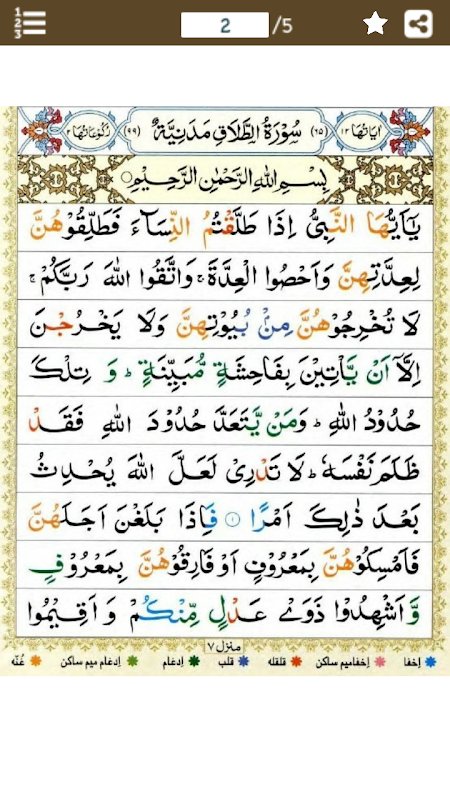 1 2 3
2 /5
اٰیَاتُهَا ۱۲ (۶۵) سُوْرَةُ الطَّلَاقِ مَدَنِيَّةٌ (۹۹) رُكُوْعَاتُهَا ۲
بِسْمِ اللّٰهِ الرَّحْمٰنِ الرَّحِيْمِ ○
يٰۤاَيُّهَا النَّبِىُّ اِذَا طَلَّقْتُمُ النِّسَآءَ فَطَلِّقُوْهُنَّ
لِعِدَّتِهِنَّ وَاَحْصُوا الْعِدَّةَ ۚ وَاتَّقُوا اللّٰهَ رَبَّكُمْ ۚ
لَا تُخْرِجُوْهُنَّ مِنْۢ بُيُوْتِهِنَّ وَلَا يَخْرُجْنَ
اِلَّاۤ اَنْ يَّاْتِيْنَ بِفَاحِشَةٍ مُّبَيِّنَةٍ ؕ وَ تِلْكَ
حُدُوْدُ اللّٰهِ ؕ وَمَنْ يَّتَعَدَّ حُدُوْدَ اللّٰهِ فَقَدْ
ظَلَمَ نَفْسَهٗ ؕ لَا تَدْرِىْ لَعَلَّ اللّٰهَ يُحْدِثُ
بَعْدَ ذٰلِكَ اَمْرًا ۱ فَاِذَا بَلَغْنَ اَجَلَهُنَّ
فَاَمْسِكُوْهُنَّ بِمَعْرُوْفٍ اَوْ فَارِقُوْهُنَّ بِمَعْرُوْفٍ
وَّاَشْهِدُوْا ذَوَىْ عَدْلٍ مِّنْكُمْ وَ اَقِيْمُوا
منزل ۷
إخفا إخفامیم ساکن قلقله قلب إدغام إدغام میم ساکن غُنّه